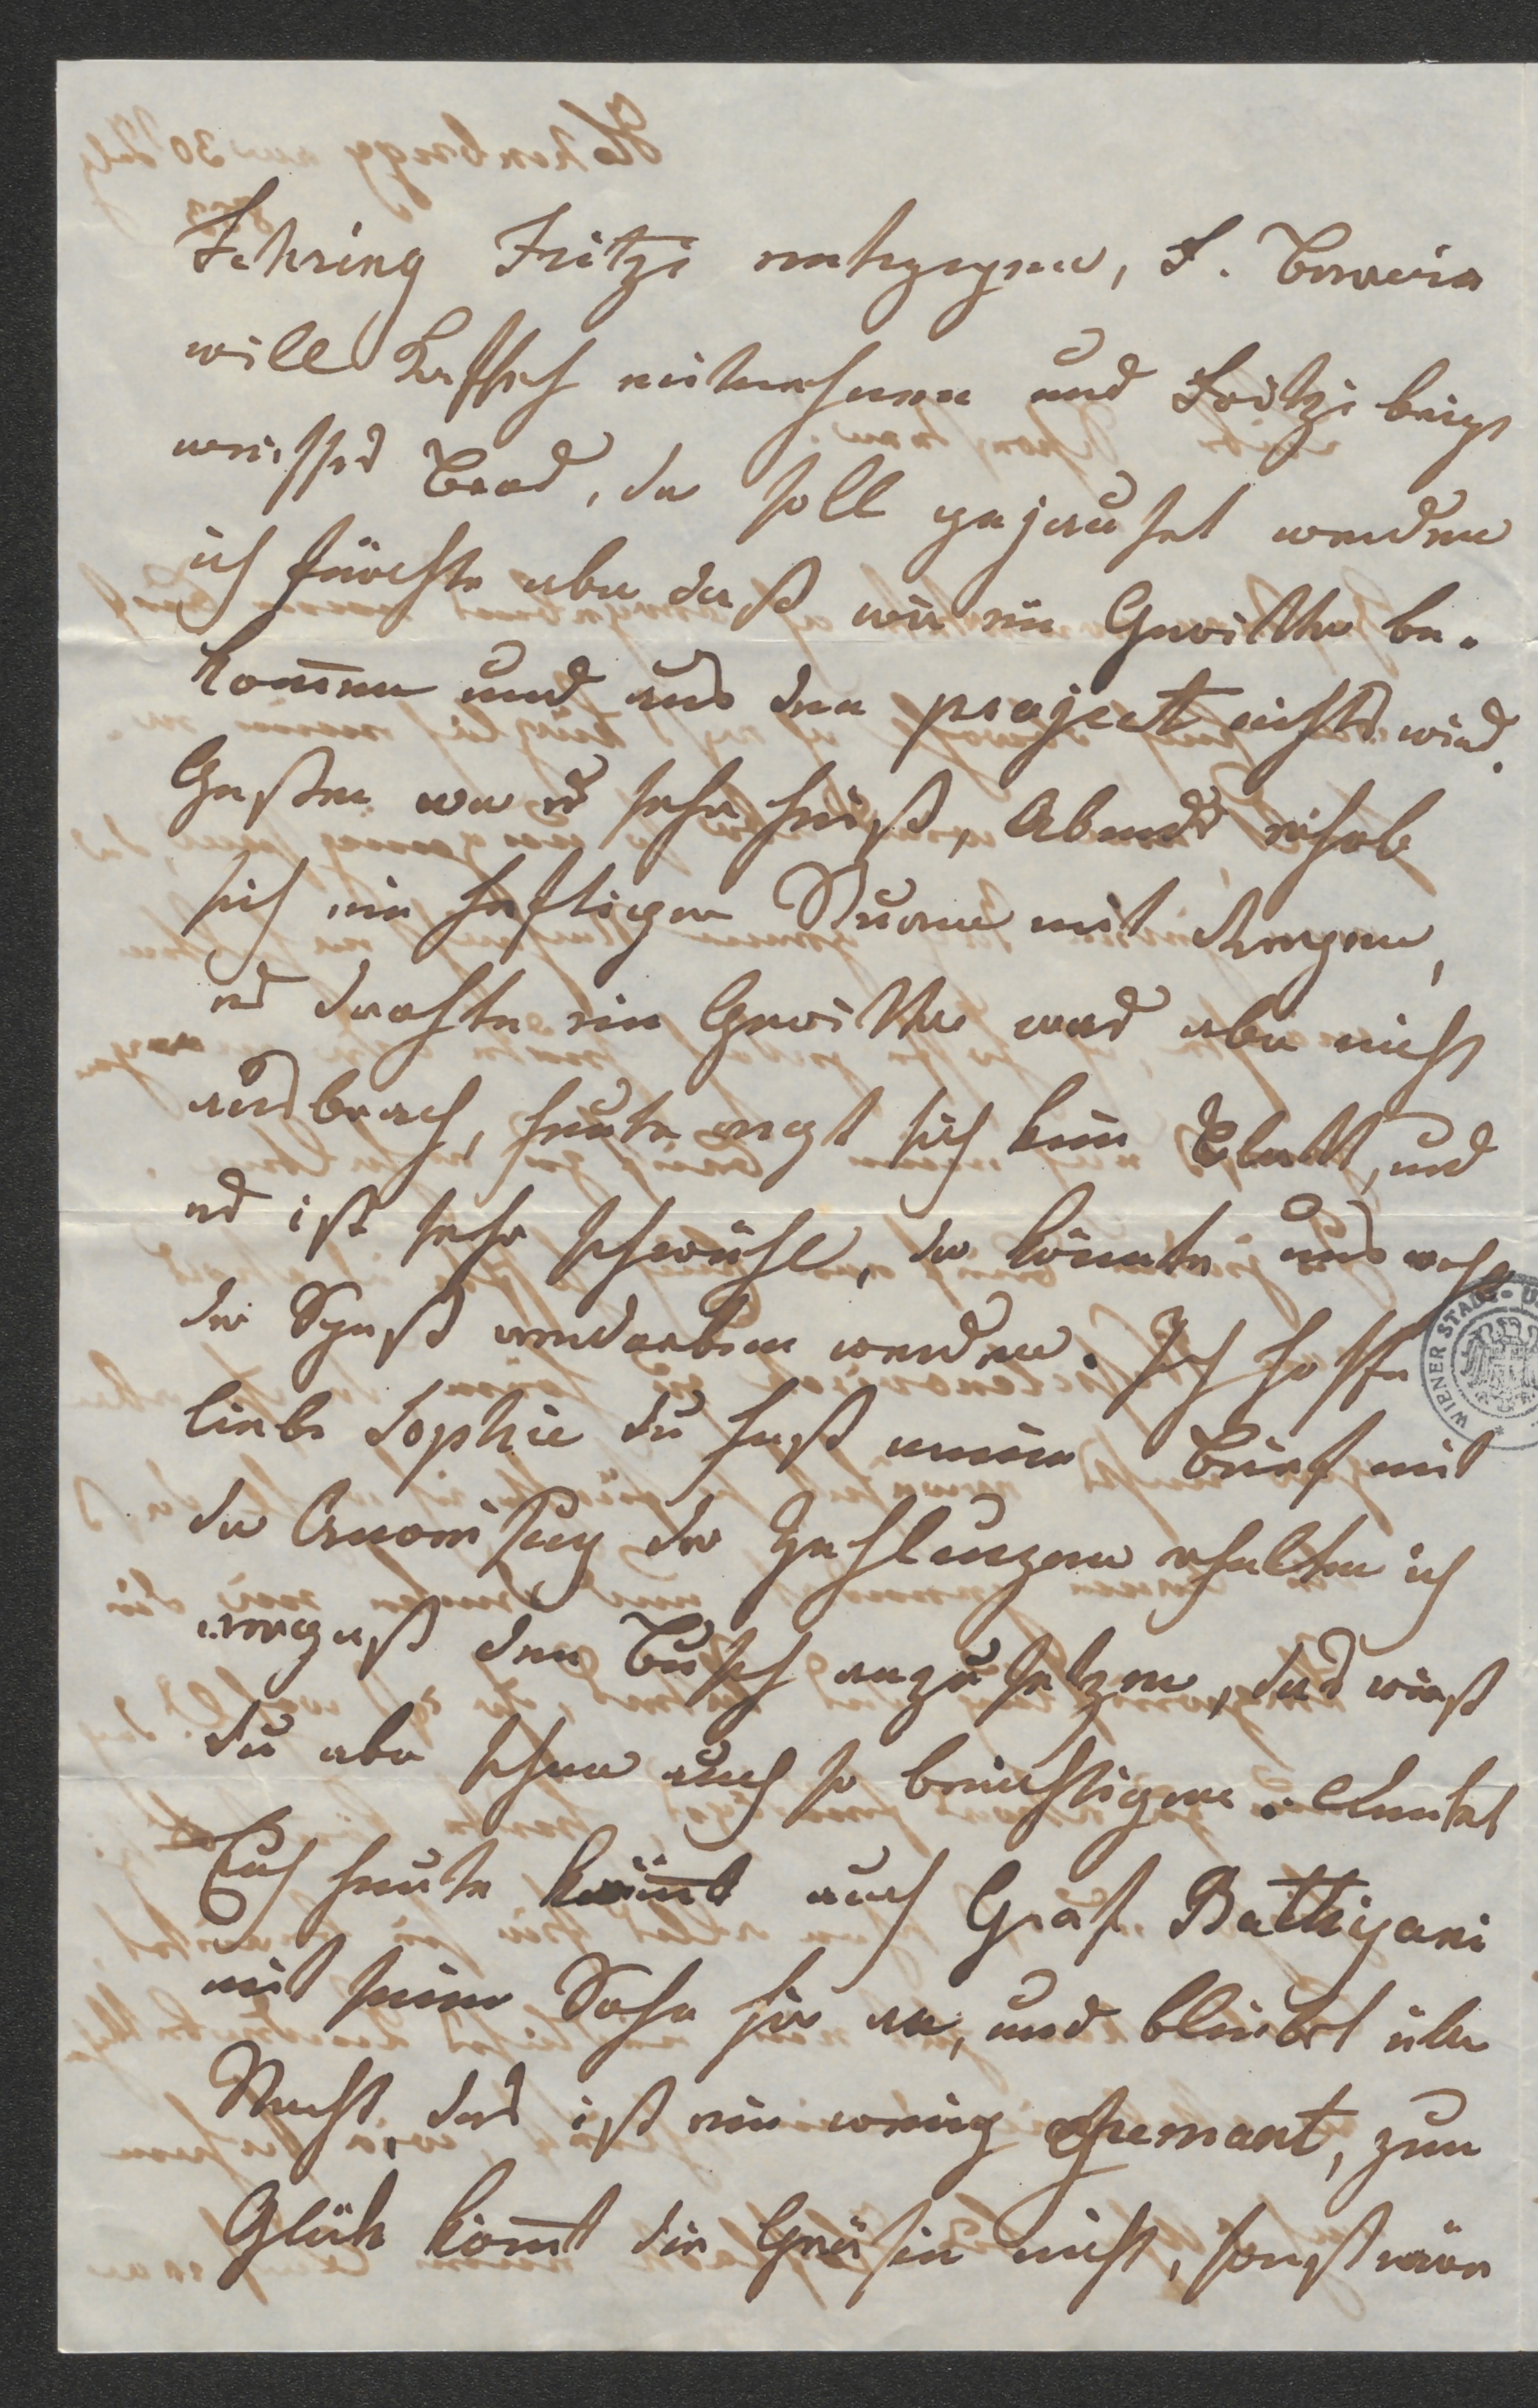 Fehring Fritzi entgegen, F. Bavvier
will Kaffeh mitnehmen und Fritzi bringt
weißes Brod, da soll gejauset werden
ich fürchte aber daß wir ein Gewitter be-
kom̄en und aus den project nichts wird.
Gestern war es sehr heiß, Abends erhob
sich ein heftiger Sturm mit Regen,
es drohte ein Gewitter was aber nicht
ausbrach, heute regt sich kein Blatt, und
es ist sehr schwühl, da könnte uns wohl
der Spaß verdorben werden. Ich hoffe
liebe Sophie du hast meinen Brief mit
der Anweisung der Zahlungen erhalten ich
vergaß den Busch anzusetzen, das wirst
du aber schon auch so berichtigen. Denket
Euch heute kom̄t auch Graf Bathyani
mit seinen Sohn hir an, und bleibet über
Nacht, das ist ein wenig schenant, zum
Glük kom̄t die Gräfin nicht, sonst wäre
WIENER STADT- U